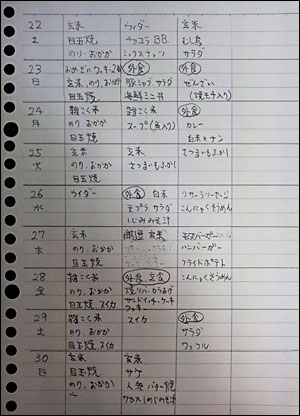 22 玄米 ウイダー 玄米
土 目玉焼 チョコラBB むし鳥
のり・おかか ミックスナッツ サラダ
23 外食 外食
日 玄米、のり、おかか 豚シャブ サラダ ぜんざい
目玉焼 海鮮ミニ丼 (焼モチ入り)
24 雑こく米 雑こく米 外食
月 のり、おかか スープ(魚入り) カレー
目玉焼 白米とナン
25 玄米 玄米 さつまいもふかし
火 のり、おかか さつまいもふかし
目玉焼
26 ウイダー 外食 白米 リサーラソーセージ
水 天プラ サラダ こんにゃくそうめん
しじみみそ汁
27 玄米 玄米 モスバーガー
木 のり、おかか ハンバーガー
目玉焼 フライドポテト
28 雑こく米 外食 こんにゃくそうめん
金 のり、おかか 焼リバ・カラアゲ
目玉焼、スイカ サンドイッチ・ケーキ
クッキー
29 雑こく米 スイカ 外食
土 のり、おかか サラダ
目玉焼、スイカ ワッフル
30 玄米 玄米
日 目玉焼 サケ
のり、おかか 人参バター焼
ワカメとしめじのみそ汁